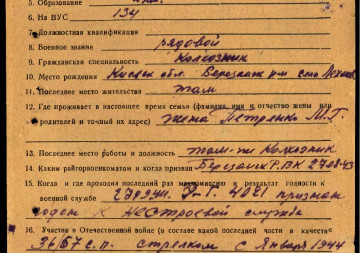 5. Образование
6. На ВУС 134
7. Должностная квалификация
8. Военное звание рядовой
9. Гражданская специальность Колхозник
10. Место рождения Киевск обл. Березанск р-н село
11. Последнее место жительства там
12. Где проживает в настоящее время семья (фамилия, имя и отчество жены или
родителей и точный их адрес) жена Петренко М. Г.
13. Последнее место работы и должность там-же Колхозник
14. Каким райгорвоенкоматом и когда призван Березанс РВК 27.09.43
15. Когда и где проходил последний раз и результат годности к
военной службе ЭГ 4081 признан
годен к нестроевой служба
16. Участие в Отечественной войне (в составе какой последней части и в качеств
36/57 с. п. стрелком с Января 1944